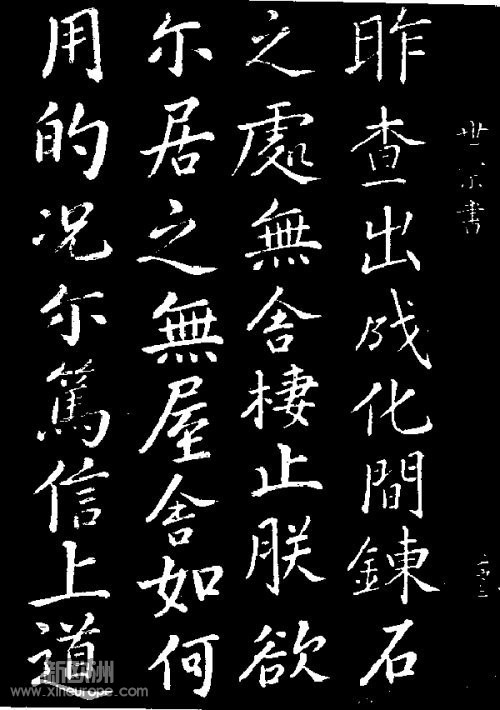 世宗書
昨查出成化間鍊石
之處無舍棲止朕欲
尔居之無屋舍如何
用的况尔篤信上道
新欧洲
www.xineurope.com